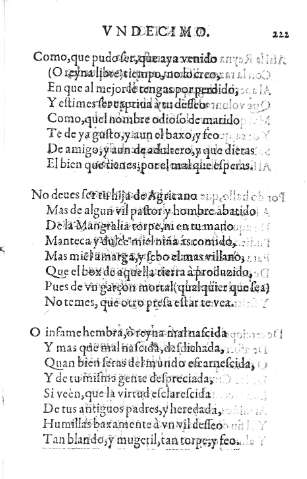 VNDECIMO. 222
Como, que pudo ser, que aya venido
(O reyna libre) tiempo, no lo creo,
En que al mejor de tengas por perdido,
Y estimes ser captiua a tu desseo
Como, que el nombre odioso de marido
Te de ya gusto, y aun el baxo, y feo
De amigo, y aun de adultero, y que dietas
El bien que tienes, por el mal que esperas.
No deues ser tu hija de Agricano
Mas de algun vil pastor y hombre abatido
De la Mangralia torpe, ni en tu mano
Manteca y dulce miel niña as comido,
Mas miel amarga, y sebo el mas villano,
Que el box de aquella tierra à produzido,
Pues de vn garçon mortal (qualquier que sea)
No temes, que otro presa estar te vea.
O infame hembra, ô reyna mal nascida
Y mas que mal nascida, desdichada,
Quan bien seras del mundo escarnescida,
Y de tu mismo gente despreciada,
Si veen, que la virtud esclarescida
De tus antiguos padres, y heredada,
Humillas baxamente à vn vil desseo
Tan blando, y mugeril, tan torpe, y feo.